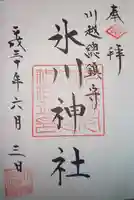 奉拝
川越總鎮守
氷川神社
平成三十年六月三日